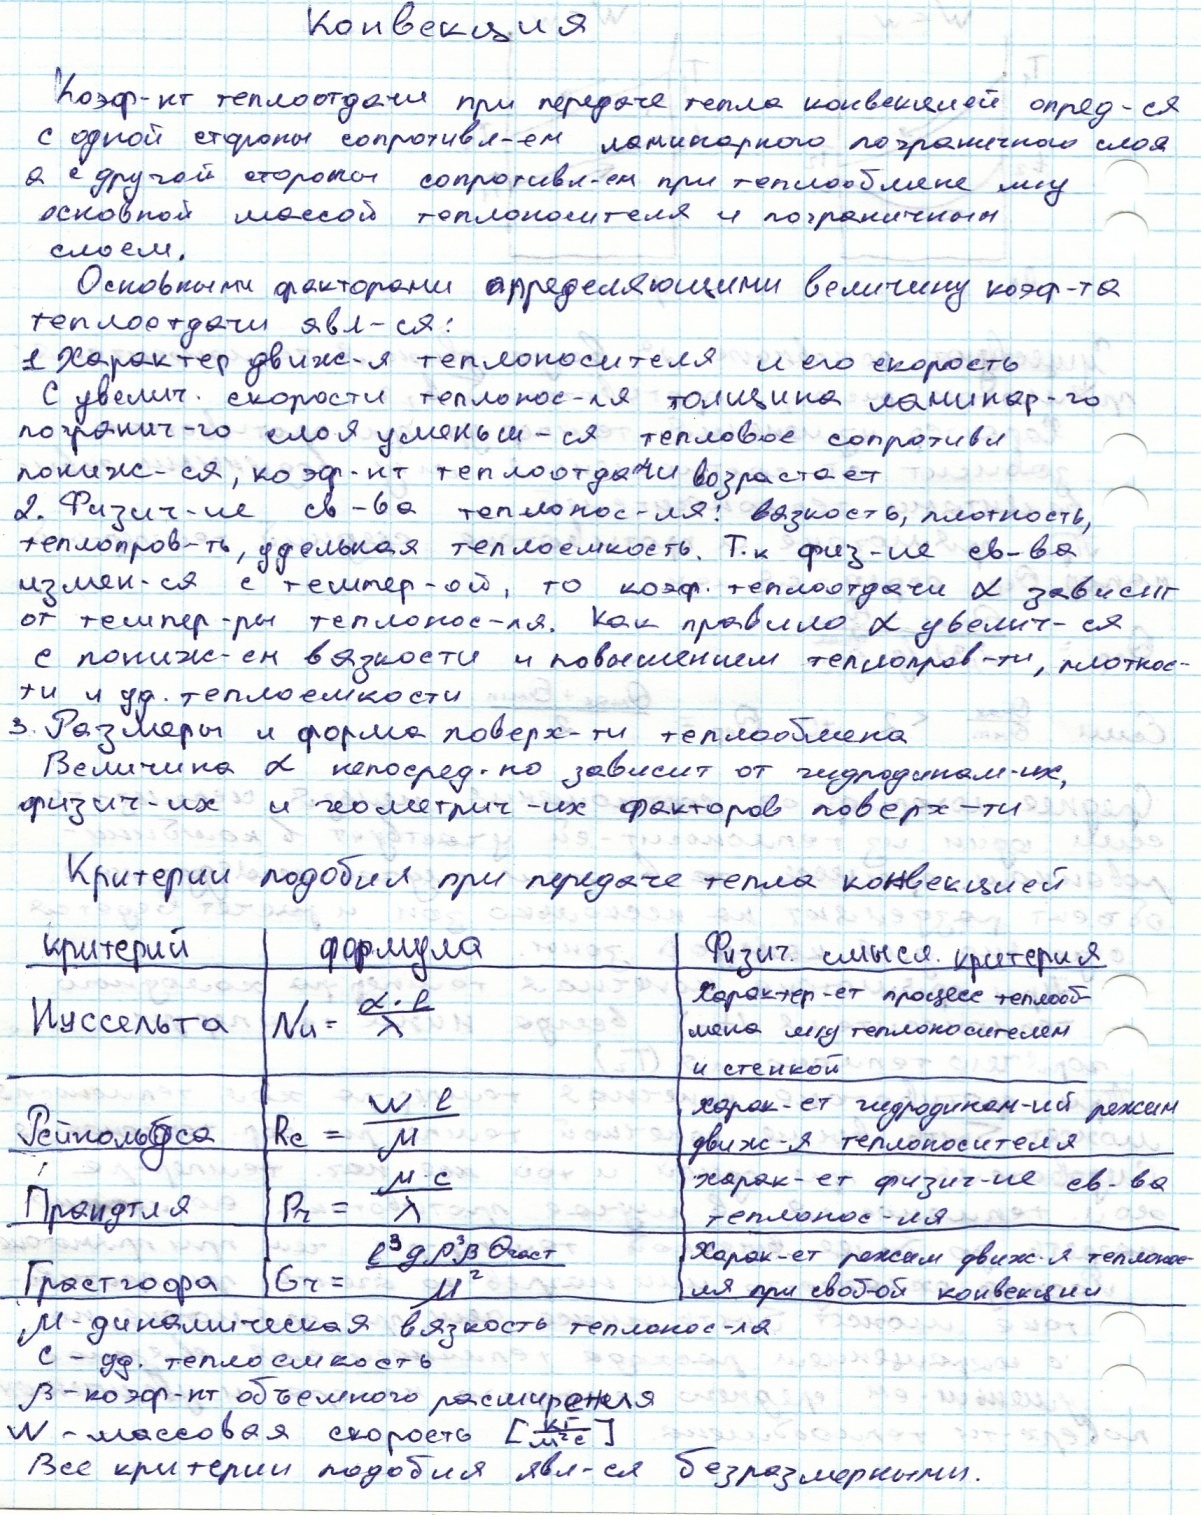 Конвекция
Коэф-нт теплоотдачи при передаче тепла конвекцией опред-ся
с одной стороны сопротивл-ем ламинарного пограничного слоя
а с другой стороны сопротивл-ем при теплообмене м/у
основной массой теплоносителя и пограничным
слоем.
Основными факторами определяющими величину коэф-та
теплоотдачи явл-ся:
1 Характер движ-я теплоносителя и его скорость
С увелич. скорости теплонос-ля толщина ламинар-го
погранич-го слоя уменьш-ся тепловое сопротивл
пониж-ся, коэф-нт теплоотдачи возрастает
2. Физич-ие св-ва теплонос-ля: вязкость, плотность,
теплопров-ть, удельная теплоемкость. Т.к физ-ие св-ва
измен-ся с темпер-ой, то коэф. теплоотдачи α зависит
от темпер-ры теплонос-ля. Как правило α увелич-ся
с пониж-ем вязкости и повышением теплопров-ти, плотнос-
ти и уд. теплоемкости
3. Размеры и форма поверх-ти теплообмена
Величина α непосред-но зависит от гидродинам-их,
физич-их и геометрич-их факторов поверх-ти
Критерии подобия при передаче тепла конвекцией
критерий формула Физич. смысл. критерия
Нуссельта Nu = α·l/λ Характер-ет процесс теплооб-
мена м/у теплоносителем
и стенкой
Рейнольдса Re = W l/μ харак-ет гидродинам-ий режим
движ-я теплоносителя
Прандтля Pr = μ·c/λ харак-ет физич-ие св-ва
теплонос-ля
Грастгофа Gr = l³gρ³βθчаст/μ² Харак-ет режим движ-я теплонос-
ля при своб-ой конвекции
μ - динамическая вязкость теплонос-ля
с - уд. теплоемкость
β - коэф-нт объемного расширения
W - массовая скорость [кг/м²с]
Все критерии подобия явл-ся безразмерными.